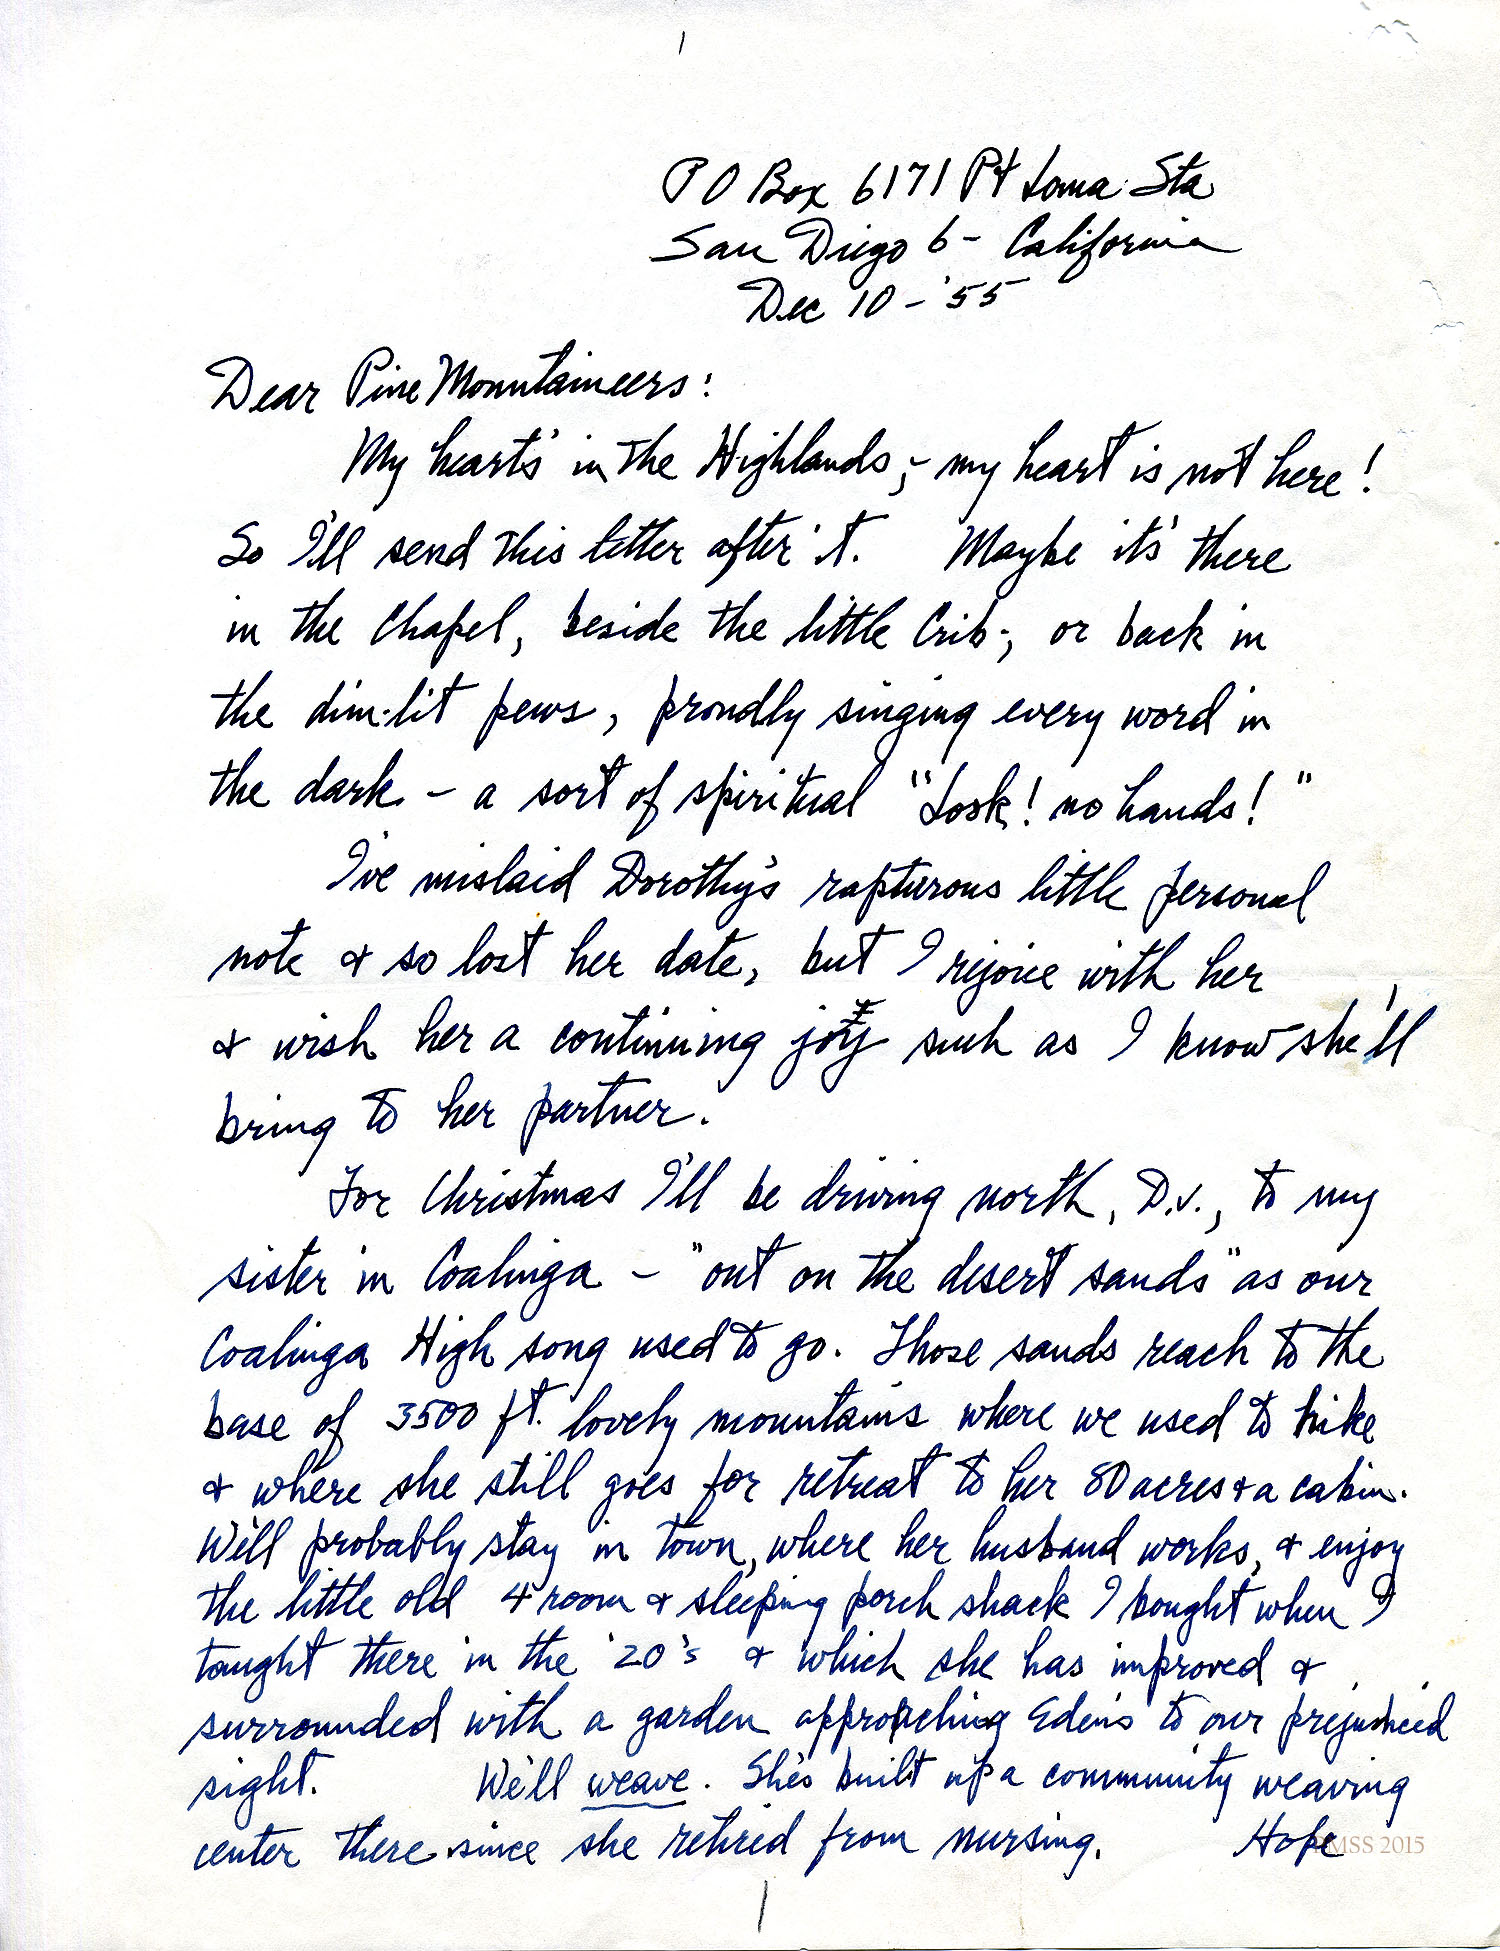 1
P O Box 6171 Pt Loma Sta
San Diego 6 - California
Dec 10 - '55
Dear Pine Mountaineers:
My heart's in the Highlands, - my heart is not here!
So I'll send this letter after it. Maybe it's there
in the Chapel, beside the little Crib-, or back in
the dim-lit pews, proudly singing every word in
the dark - a sort of spiritual "Look! no hands!"
I've mislaid Dorothy's rapturous little personal
note & so lost her date, but I rejoice with her
& wish her a continuing joy such as I know she'll
bring to her partner.
For Christmas I'll be driving north, D.V., to my
sister in Coalinga - "out on the desert sands" as our
Coalinga High song used to go. Those sands reach to the
base of 3500 ft. lovely mountains where we used to hike
& where she still goes for retreat to her 80 acres & a cabin.
We'll probably stay in town, where her husband works, & enjoy
the little old 4 room & sleeping porch shack I bought when I
taught there in the '20's & which she has improved &
surrounded with a garden approaching Eden's to our prejudiced
sight. We'll weave. She's built up a community weaving
center there since she retired from nursing. Hope
MSS 2015
1